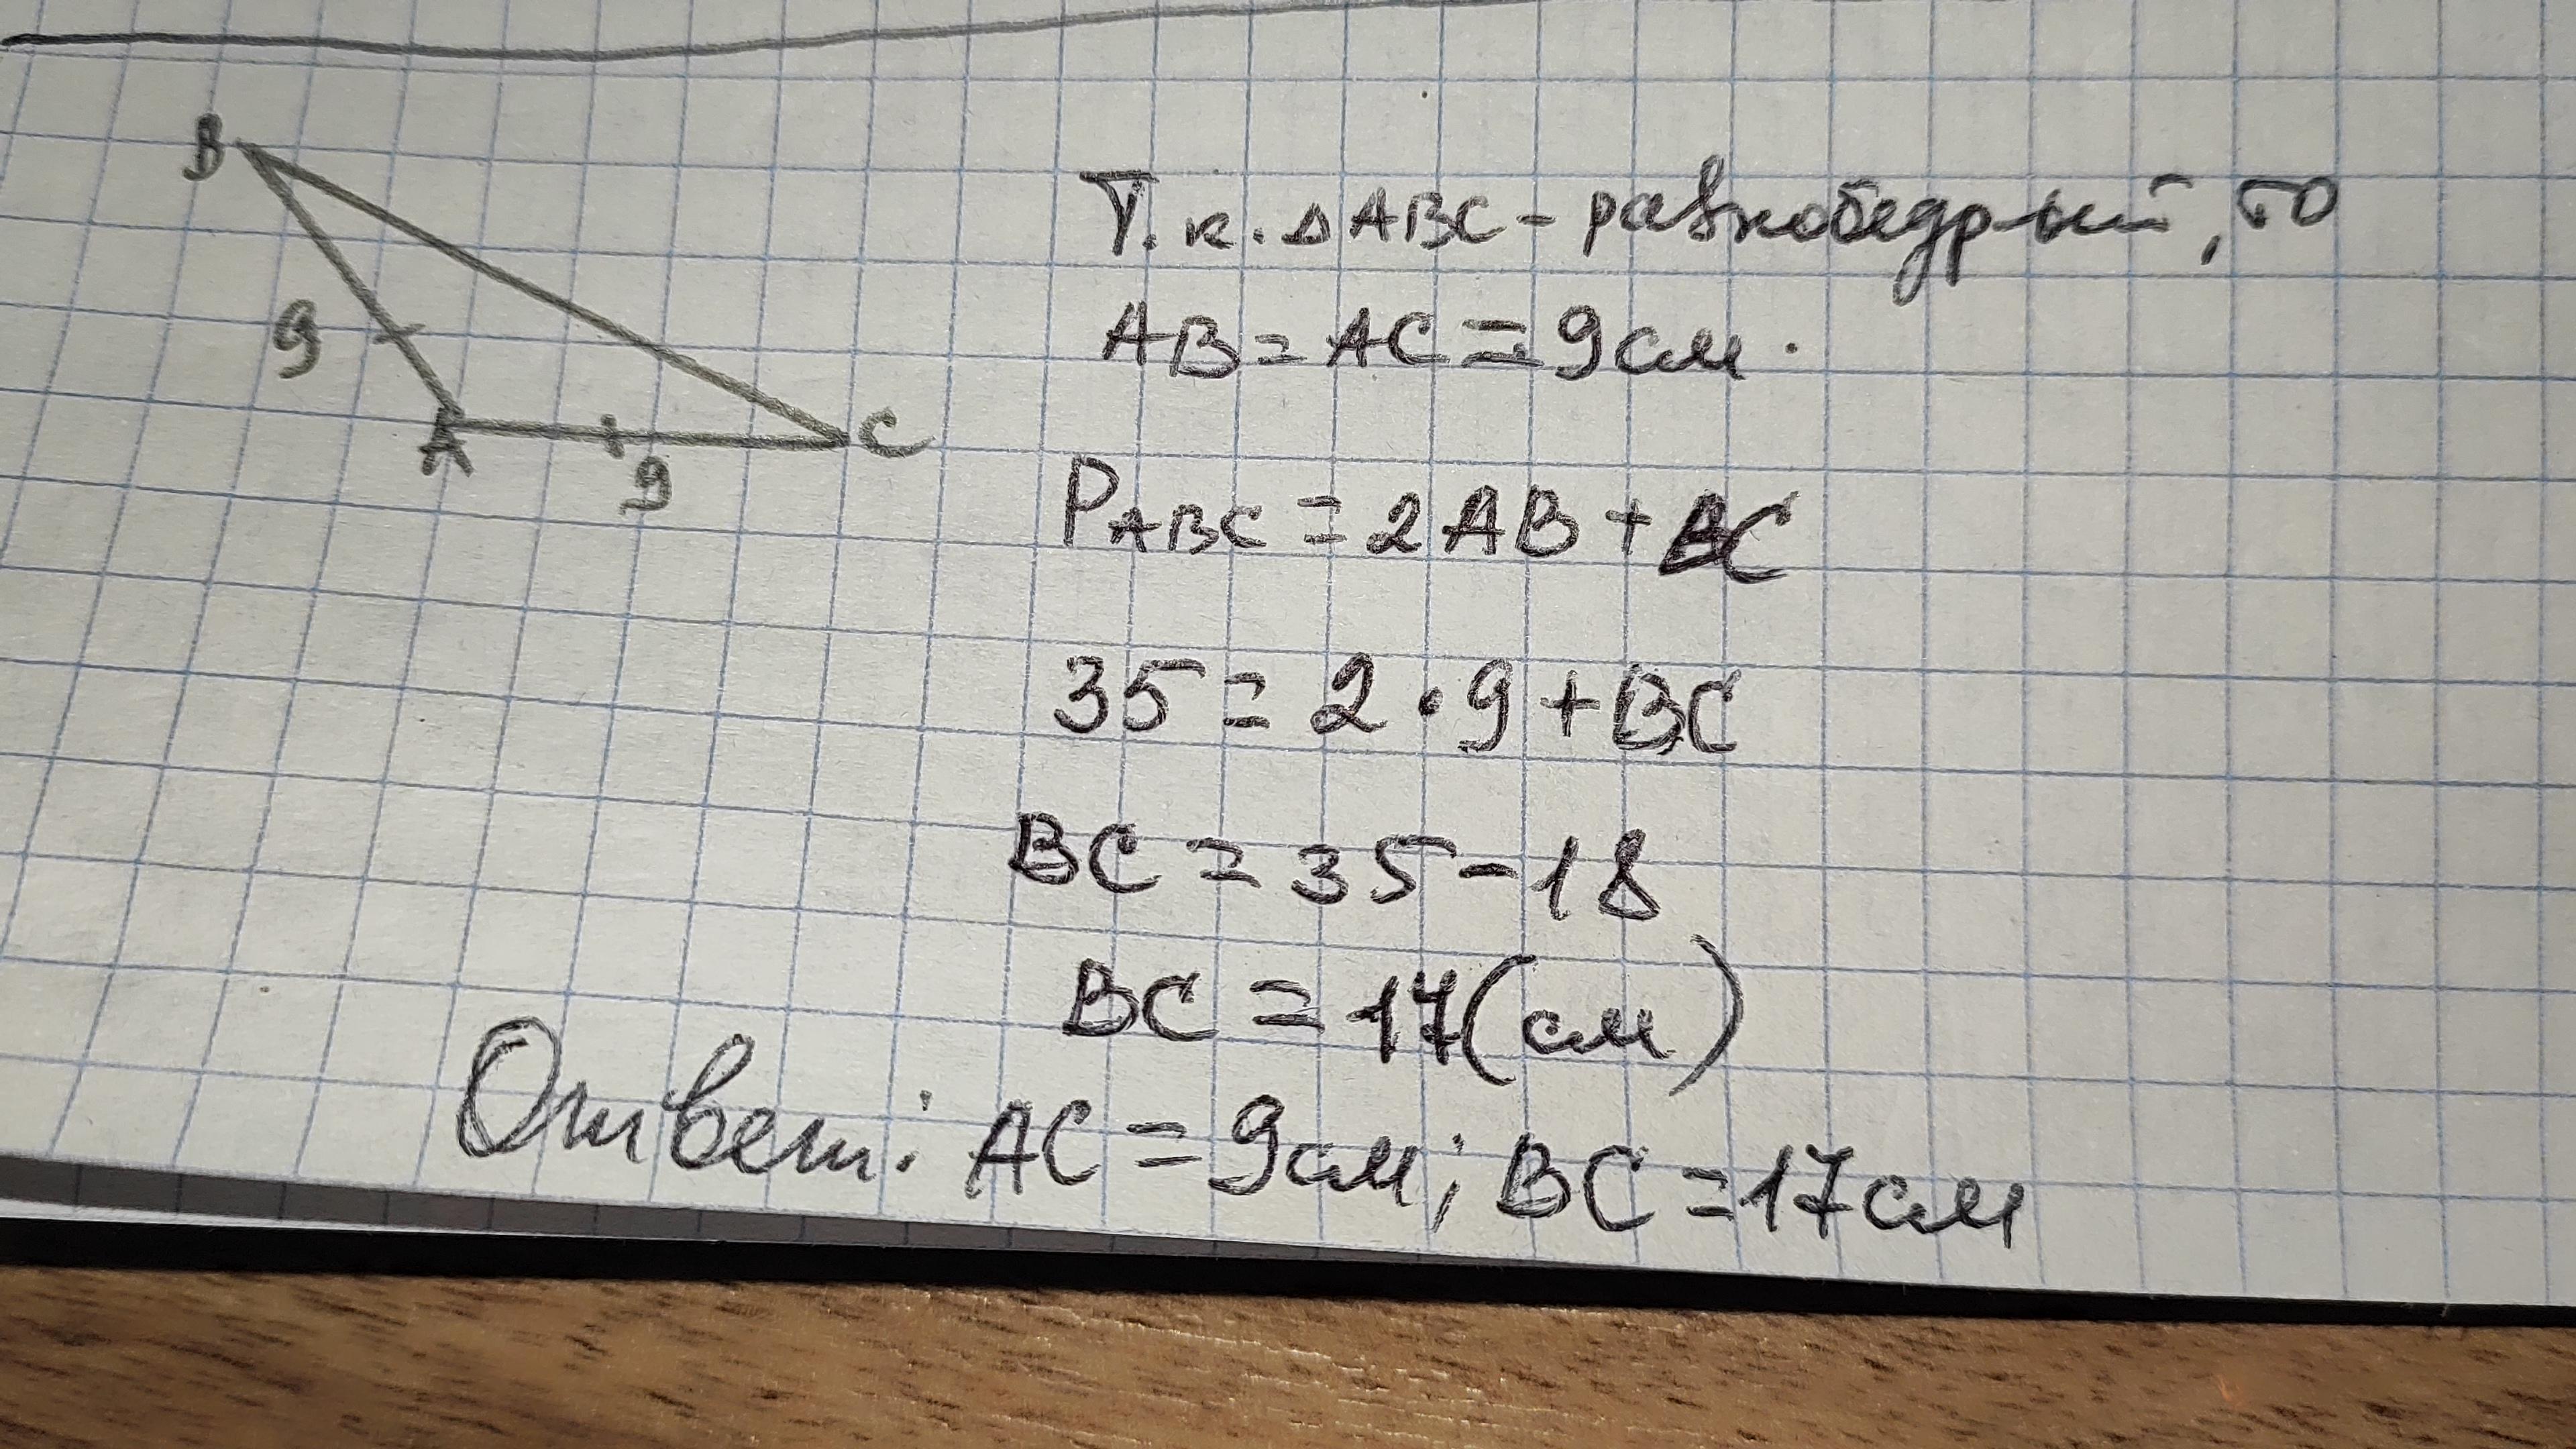 B
9
A
9
C
Т.к. ΔABC - равнобедрный, то
AB = AC = 9см.
PABC = 2AB + BC
35 = 2 · 9 + BC
BC = 35 - 18
BC = 17(см)
Ответ: AC = 9см; BC = 17см